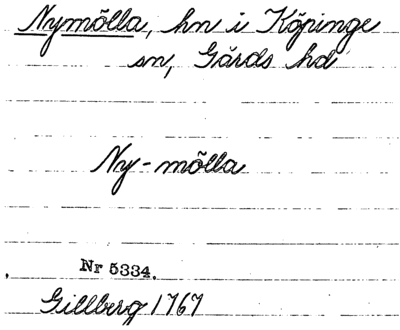 Nymölla, hn i Köpinge
sn, Gärds hd
Ny-mölla
Nr 5334.
Gillberg 1767